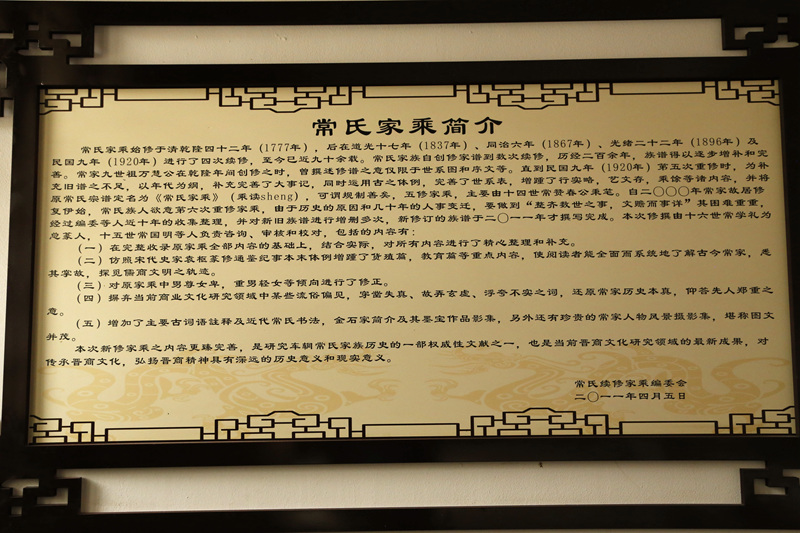 常氏家乘简介
常氏家乘始修于清乾隆四十二年（1777年），后在道光十七年（1837年）、同治六年（1867年）、光绪二十二年（1896年）及
民国九年（1920年）进行了四次续修，至今已近九十余载。常氏家族自创修家谱到数次续修，历经二百余年，族谱得以逐步增补和完
善。常家九世祖万慧公在乾隆年间创修之时，曾撰述修谱之意仅限于世系图和序文等。直到民国九年（1920年）第五次重修时，为补
充旧谱之不足，以年代为纲，补充完善了大事记，同时运用古之体例，完善了世系表，增踵了行实略，艺文存，乘馀等诸内容，并将
原常氏宗谱定名为《常氏家乘》（乘读sheng），可谓规制善矣。五修家乘，主要由十四世常赞春公秉笔。自二〇〇〇年常家故居修
复伊始，常氏族人欲意第六次重修家乘，由于历史的原因和几十年的人事变迁，要做到“整齐数世之事，文赡而事详”其困难重重，
经过编委等人近十年的收集整理，并对新旧族谱进行增删多次，新修订的族谱于二〇一一年才撰写完成。本次修撰由十六世常学礼为
总纂人，十五世常国明等人负责咨询、审核和校对，包括的内容有：
（一）在完整收录原家乘全部内容的基础上，结合实际，对所有内容进行了精心整理和补充。
（二）仿照宋代史家袁枢纂修通鉴纪事本末体例增踵了货殖篇，教育篇等重点内容，使阅读者能全面而系统地了解古今常家，悉
其掌故，探觅儒商文明之轨迹。
（三）对原家乘中男尊女卑，重男轻女等倾向进行了修正。
（四）摒弃当前商业文化研究领域中某些流俗偏见，字偿失真、故弄玄虚、浮夸不实之词，还原常家历史本真，仰答先人郑重之
意。
（五）增加了主要古词语注释及近代常氏书法，金石家简介及其墨宝作品影集，另外还有珍贵的常家人物风景摄影集，堪称图文
并茂。
本次新修家乘之内容更臻完善，是研究车辋常氏家族历史的一部权威性文献之一，也是当前晋商文化研究领域的最新成果，对
传承晋商文化，弘扬晋商精神具有深远的历史意义和现实意义。
常氏续修家乘编委会
二〇一一年四月五日